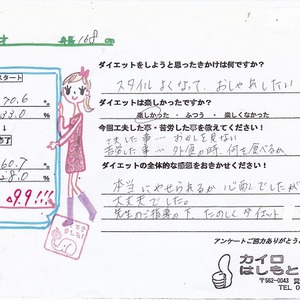 才 身長 168 cm
スタート
70.6 %
33.0 %
終了
60.7 %
28.0 %
△9.9!!!
ダイエットをしようと思ったきかけは何ですか?
スタイルよくなって、おしゃれしたい
ダイエットは楽しかったですか?
楽しかった ・ ふつう ・ 楽しくなかった
今回工夫した事・苦労した事を教えてください!
工夫した事…
苦労した事… 外食の時、何を食べるか
ダイエットの全体的な感想をおきかせください!
本当にやせられるか心配でしたが
大丈夫でした。
先生のご指導の下、たのしくダイエット
アンケートご協力ありがとう
カイロ
はしもと
〒562-0043
TEL 0